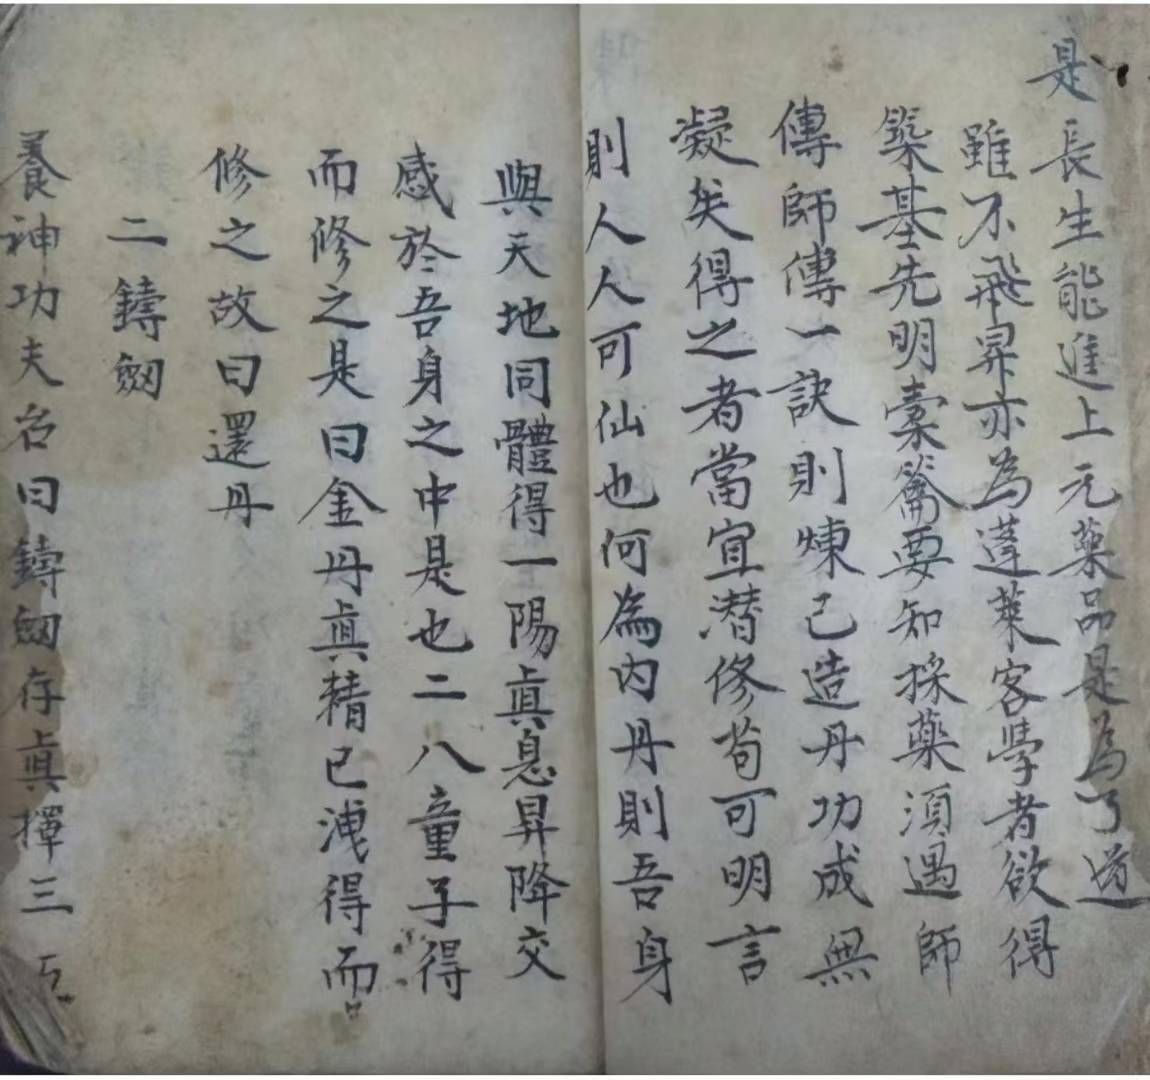 是長生能進上元藥品是為了道
雖不飛昇亦為蓬萊客學者欲得
築基先明橐籥要知採藥須遇師
傳師傳一訣則煉己造丹功成無
凝矣得之者當宜潜修苟可明言
則人人可仙也何為內丹則吾身
與天地同體得一陽眞息昇降交
感於吾身之中是也二八童子得
而修之是曰金丹眞精已洩得而
修之故曰還丹
二鑄劔
養神功夫名曰鑄劔存眞擇三